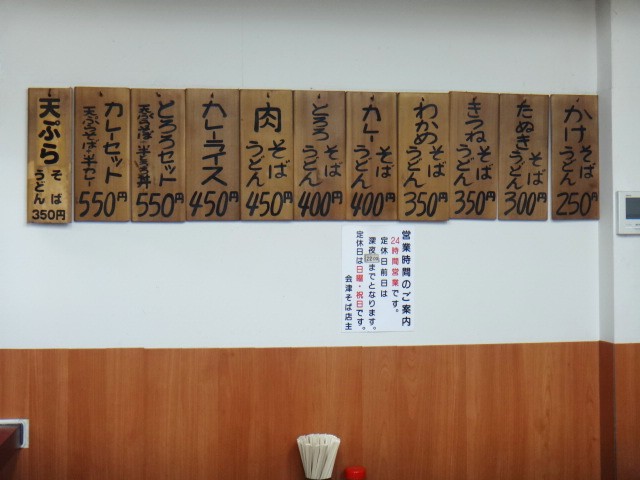 かけ
そば
うどん
250円
たぬき
そば
うどん
300円
きつね
そば
うどん
350円
わかめ
そば
うどん
350円
カレー
そば
うどん
400円
とろろ
そば
うどん
400円
肉
そば
うどん
450円
カレーライス
450円
とろろセット
550円
カレーセット
550円
天ぷら
そば
うどん
350円
営業時間のご案内
24時間営業です。
定休日前日は
深夜
までとなります。
定休日は日曜・祝日です。
会津そば店主